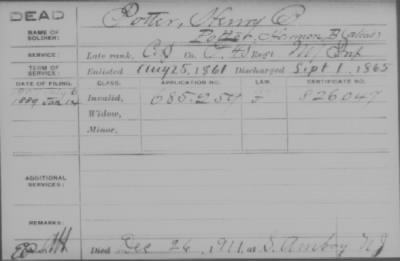 DEAD
NAME OF SOLDIER: Potter, Henry P.
Potter, B (alias)
SERVICE: Late rank, Co. Reg't NY Inf
TERM OF SERVICE: Enlisted Aug 25, 1861 Discharged Sept 1, 1865
DATE OF FILING. CLASS. APPLICATION NO. LAW. CERTIFICATE NO.
1889 Invalid, 685.254 826049
Widow,
Minor,
ADDITIONAL SERVICES:
REMARKS:
Died Dec 26, 1911, at S. Amboy NJ